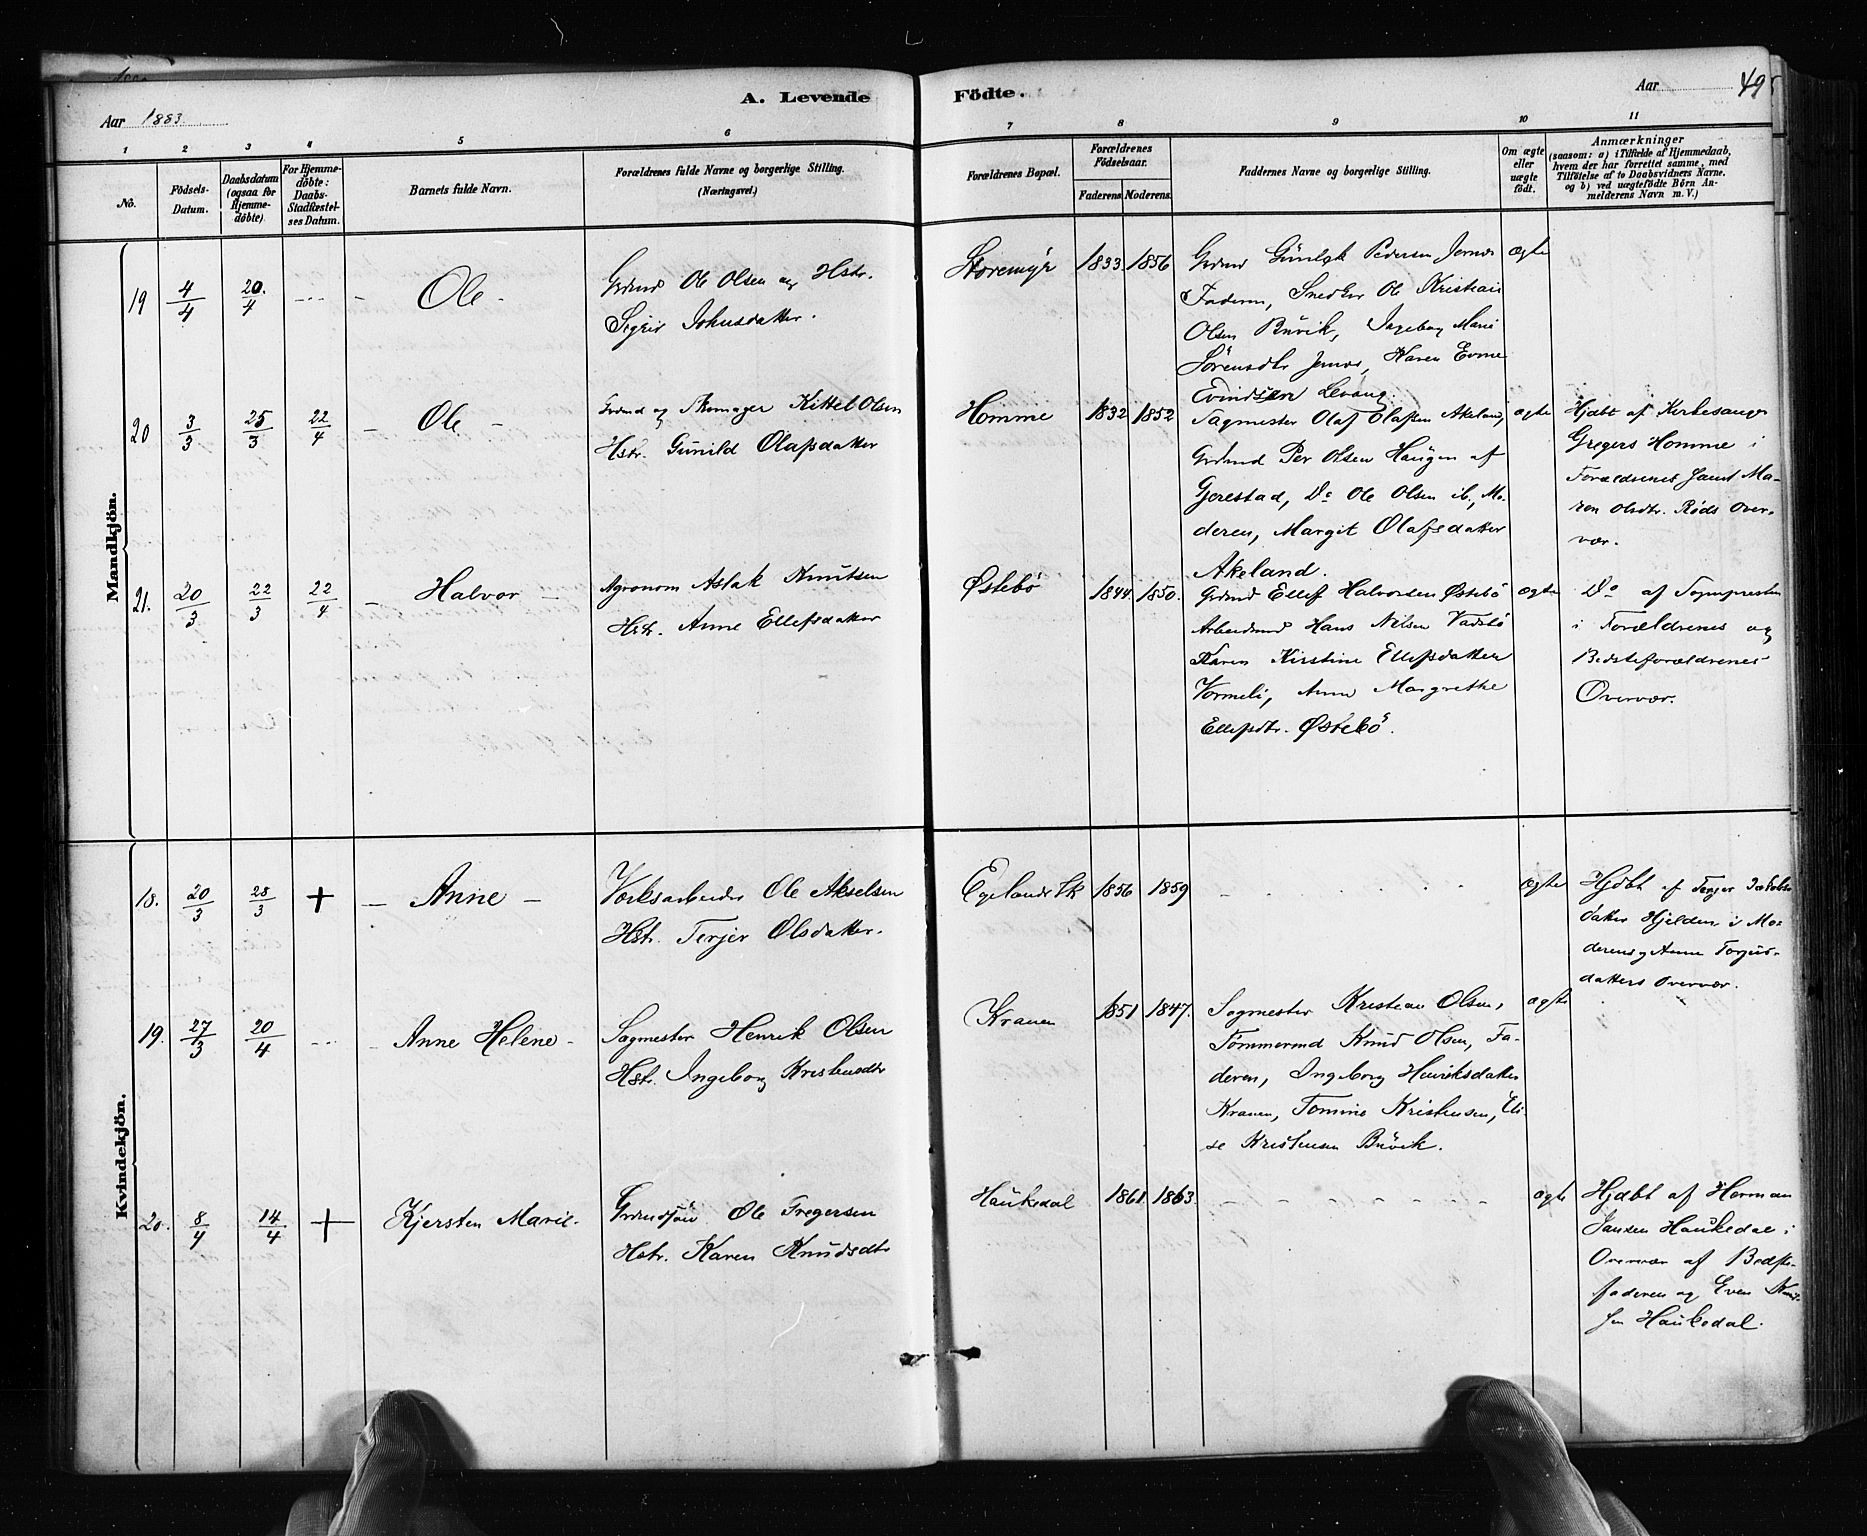 A. Levende Födte.
Aar 1883.
Aar 49
1 2 3 4 5 6 7 8 9 10 11
No.
Födsels-
Datum.
Daabsdatum
(ogsaa for
Hjemme-
döbte).
For Hjemme-
döbte:
Daabs-
Stadfæstel-
ses Datum.
Barnets fulde Navn.
Forældrenes fulde Navne og borgerlige Stilling.
(Næringsvei.)
Forældrenes Bopæl.
Forældrenes
Födselsaar.
Faderens. Moderens.
Faddernes Navne og borgerlige Stilling.
Om ægte
eller
uægte
födt.
Anmærkninger
(saasom: a) i Tilfælde af Hjemmedaab,
hvem der har forrettet samme, med
Tilföielse af to Daabsvidners Navne,
og b) ved uægtefödte Börn An-
melderens Navn m. V.)
Mandkjön.
19 4/4 20/4 --- – Ole –
Grdmd Ole Olsen og Hstr.
Sigrid Johnsdatter.
Storemyr 1833. 1856
Grdmd Gunleik Pedersen
Faderen, Snedker Ole Kristian
Olsen Buvik, Ingeborg Marie
Sørensdtr Karen
Levang.
ægte
20 3/3 25/3 22/4 – Ole –
Grdmd og Skomager Kittel Olsen
Hstr. Gunild Olafsdatter
Homme 1832 1852
Sagmester Olaf Olafsen Akeland,
Grdmd Per Olsen Haugen af
Gjerestad, Do Ole Olsen ib., Mo-
deren, Margit Olafsdatter
Akeland.
ægte
Hjdbt af Kirkesanger
Gregers Homme i
Forældrenes samt Ma-
ren Olsdtr. Røds Over-
vær.
21. 20/3 22/3 22/4 – Halvor –
Agronom Aslak Knutsen
Hstr. Anne Ellefsdatter
Østebø 1844. 1850.
Grdmd Ellef Halvorsen Østebø
Arbeidsmd Hans Nilsen
Karen Kirstine Ellefsdatter
Vormeli, Anne Margrethe
Ellefsdtr. Østebø.
ægte
Do af Sognepresten
i Forældrenes og
Bedsteforældrenes
Overvær.
Kvindekjön.
18. 20/3 28/3 + – Anne –
Verksarbeider Ole Akselsen
Hstr. Terjer Olsdatter.
Egelands Vk 1856 1859
ægte
Hjdbt af
datter Hjelden i Mo-
derens og Anne Torjus-
datters Overvær.
19. 27/3 20/4 --- – Anne Helene –
Sagmester Henrik Olsen
Hstr. Ingeborg Kristensdtr
Kranen 1851 1847.
Sagmester Kristian Olsen,
Tømmermd Knud Olsen, Fa-
deren, Ingeborg Henriksdatter
Kranen, Tomine Kristensen, Eli-
se Kristensen Buvik.
ægte
20. 8/4 14/4 + Kjersten Marie.
Grdmdsøn Ole Gregersen
Hstr. Karen Knudsdtr
Haukedal 1861. 1863.
ægte
Hjdbt af Herman
Jansen Haukedal i
Overvær af Bedste-
faderen og Even Knud-
sen Haukedal.